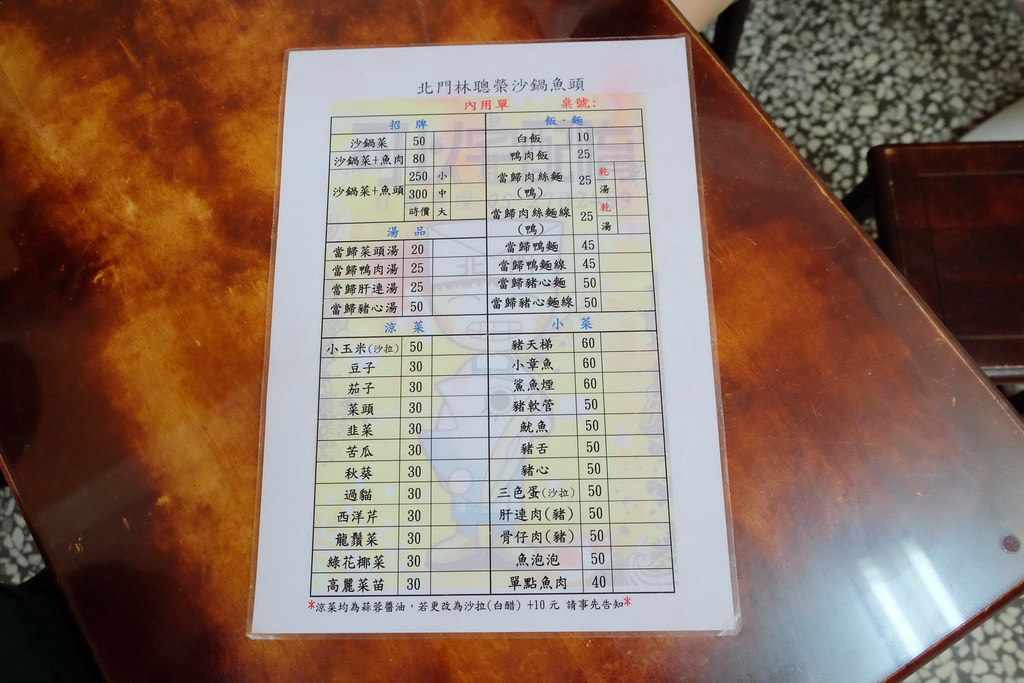 北門林聰榮沙鍋魚頭
內用單 桌號:
招牌
沙鍋菜 50
沙鍋菜+魚肉 80
沙鍋菜+魚頭 250 小
300 中
時價 大
湯品
當歸菜頭湯 20
當歸鴨肉湯 25
當歸肝連湯 25
當歸豬心湯 50
飯·麵
白飯 10
鴨肉飯 25
當歸肉絲麵(鴨) 25 乾 湯
當歸肉絲麵線(鴨) 25 乾 湯
當歸鴨麵 45
當歸鴨麵線 45
當歸豬心麵 50
當歸豬心麵線 50
涼菜
小玉米(沙拉) 50
豆子 30
茄子 30
菜頭 30
韭菜 30
苦瓜 30
秋葵 30
過貓 30
西洋芹 30
龍鬚菜 30
綠花椰菜 30
高麗菜苗 30
小菜
豬天梯 60
小章魚 60
鯊魚煙 60
豬軟管 50
魷魚 50
豬舌 50
豬心 50
三色蛋(沙拉) 50
肝連肉(豬) 50
骨仔肉(豬) 50
魚泡泡 50
單點魚肉 40
*涼菜均為蒜蓉醬油，若更改為沙拉(白醋) +10元 請事先告知*